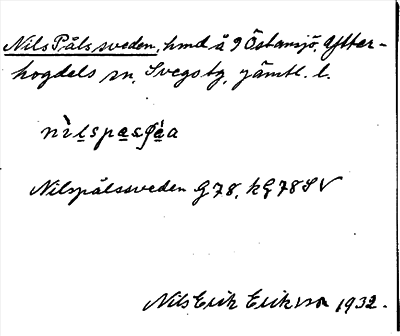 Nils Påls sveden, hmd å 9 Östansjö, Ytter-
hogdels sn, Svegs tg, Jämtl. l.
Nilspålssveden G78, k G78SV
Nils Erik Eriksson 1932.